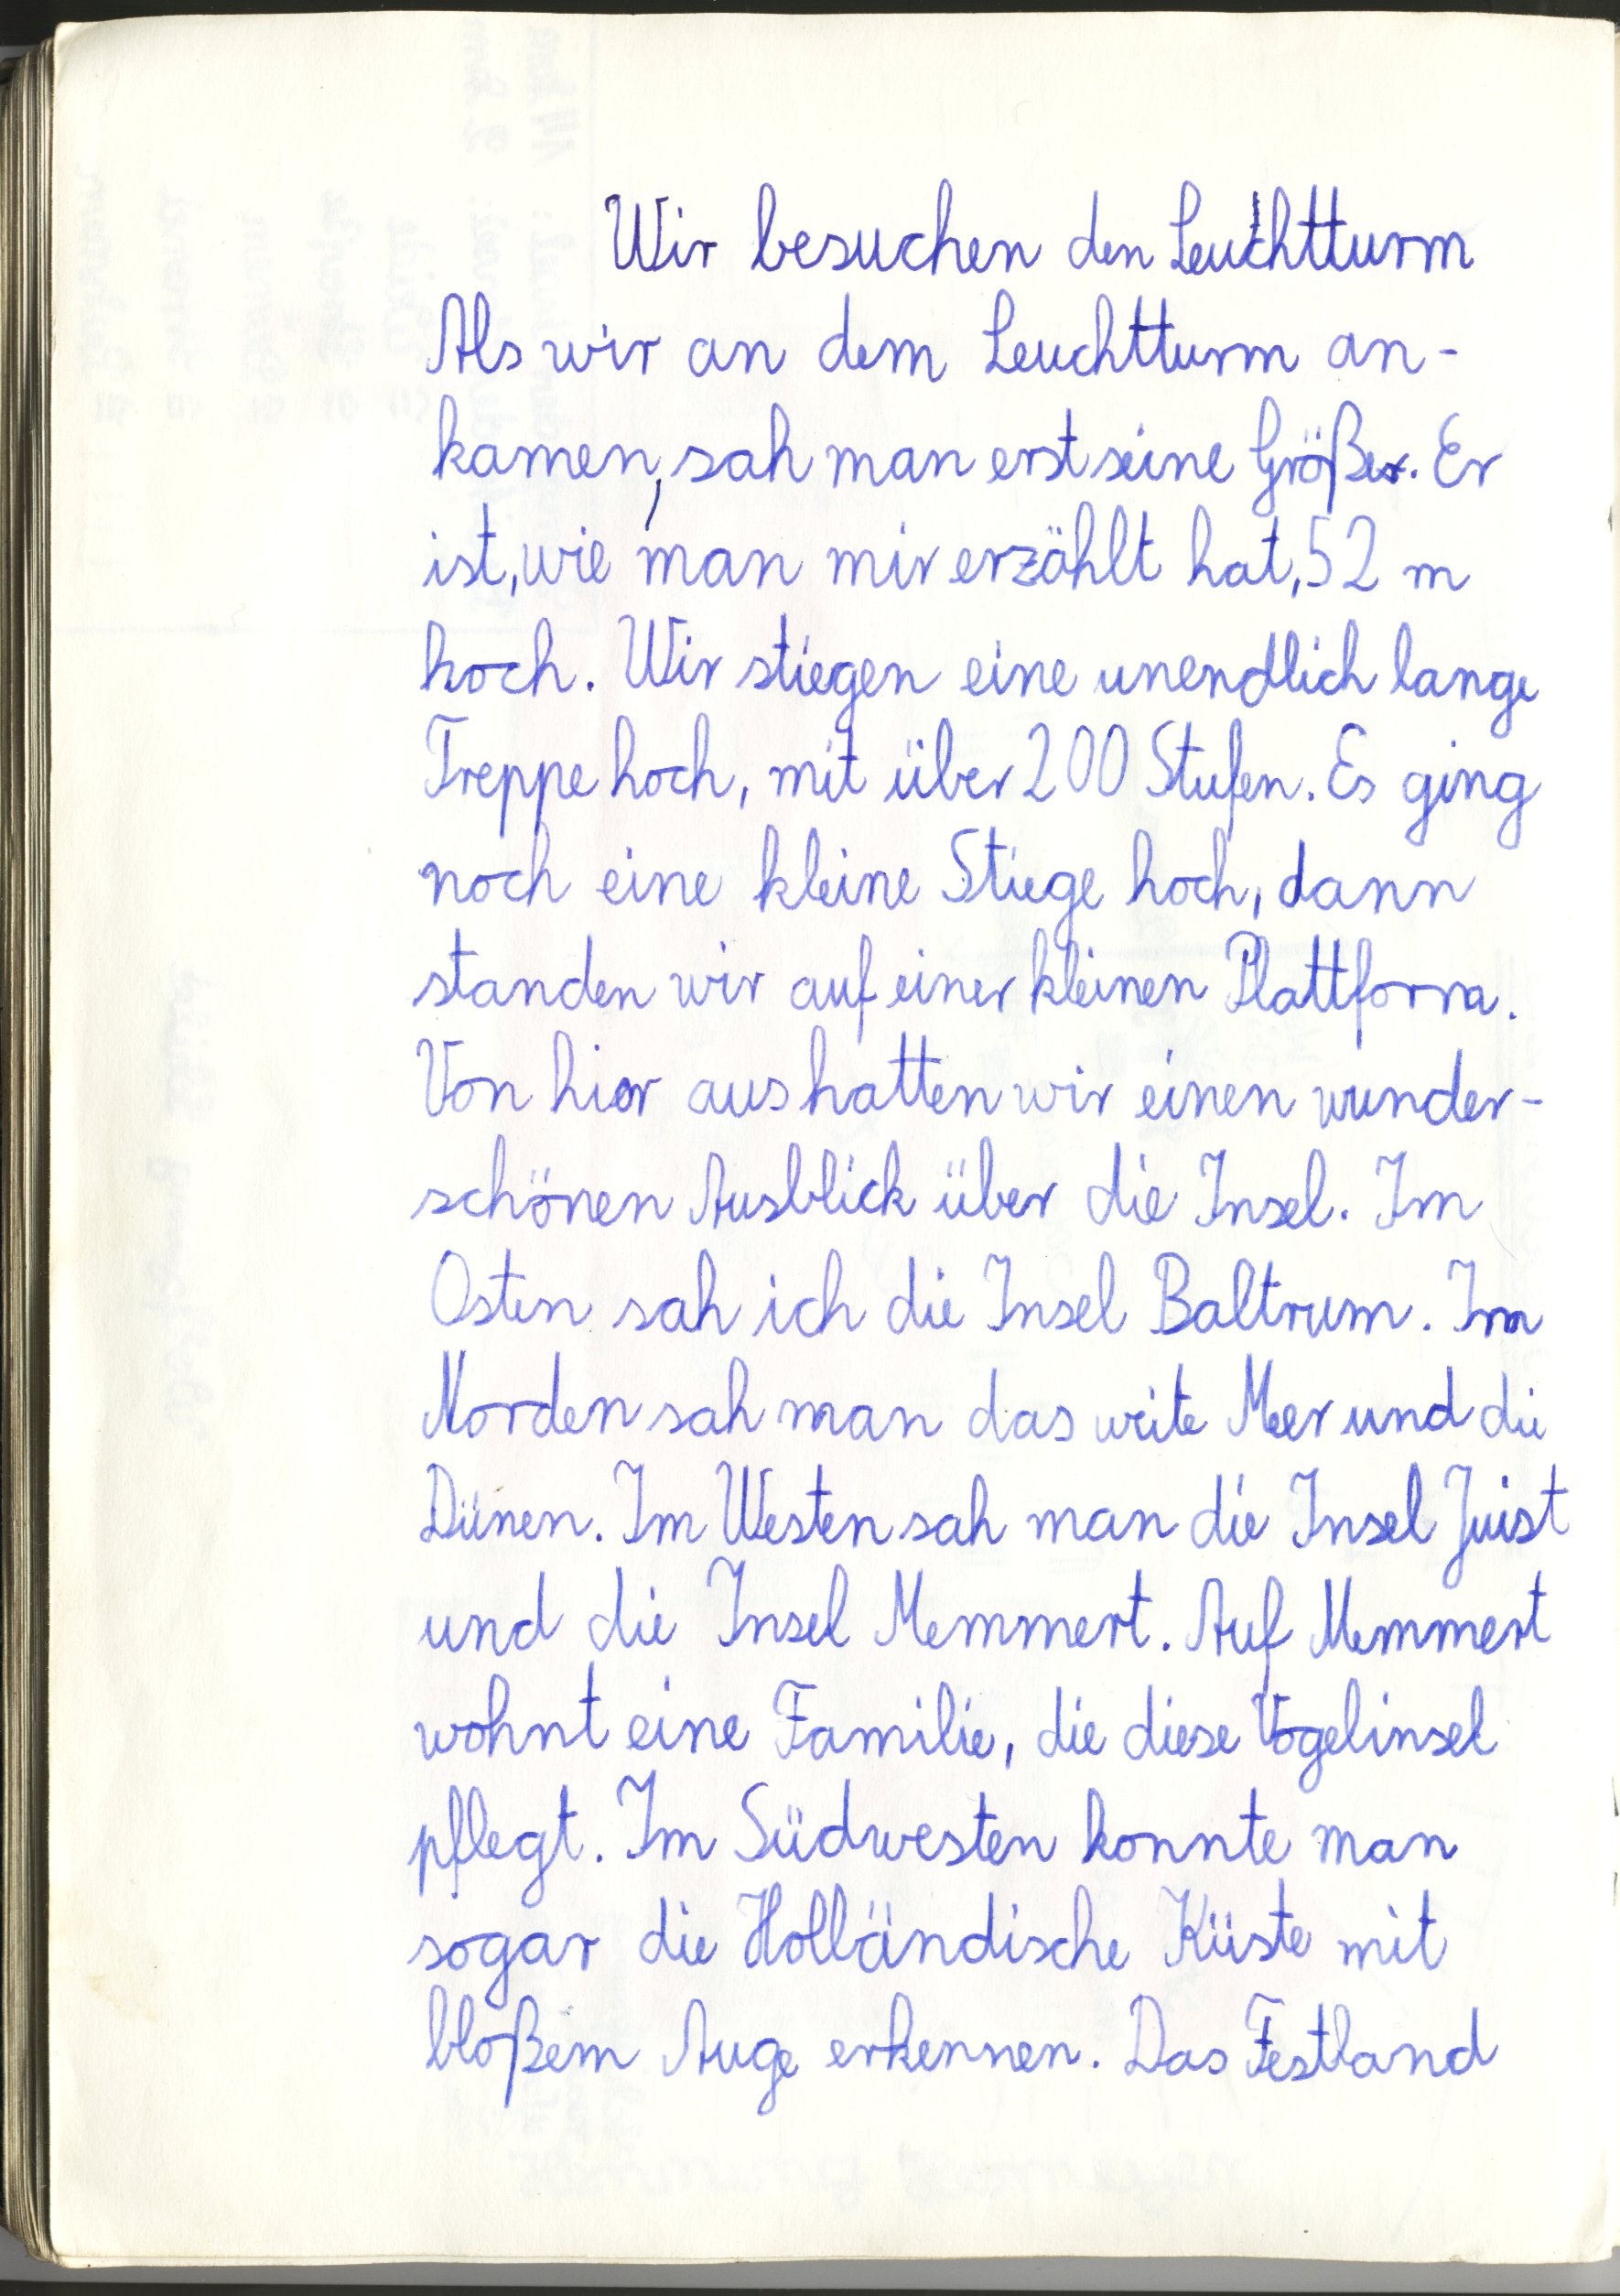 Wir besuchen den Leuchtturm
Als wir an dem Leuchtturm an-
kamen, sah man erst seine Größe. Er
ist, wie man mir erzählt hat, 52 m
hoch. Wir stiegen eine unendlich lange
Treppe hoch, mit über 200 Stufen. Es ging
noch eine kleine Stiege hoch, dann
standen wir auf einer kleinen Plattform.
Von hier aus hatten wir einen wunder-
schönen Ausblick über die Insel. Im
Osten sah ich die Insel Baltrum. Im
Norden sah man das weite Meer und die
Dünen. Im Westen sah man die Insel Juist
und die Insel Memmert. Auf Memmert
wohnt eine Familie, die diese Vogelinsel
pflegt. Im Südwesten konnte man
sogar die Holländische Küste mit
bloßem Auge erkennen. Das Festland